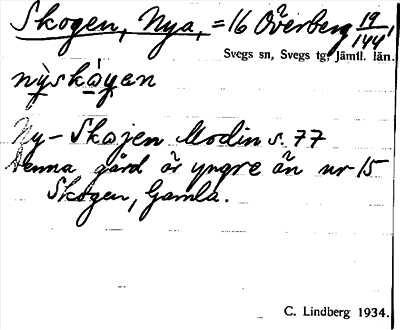 Skogen, Nya, = 16 Överberg 19/144
Svegs sn, Svegs tg, Jämtl. län.
nyskoγen
Ny-Skojen Modin s. 77
Denna gård är yngre än nr 15
Skogen, Gamla.
C. Lindberg 1934.